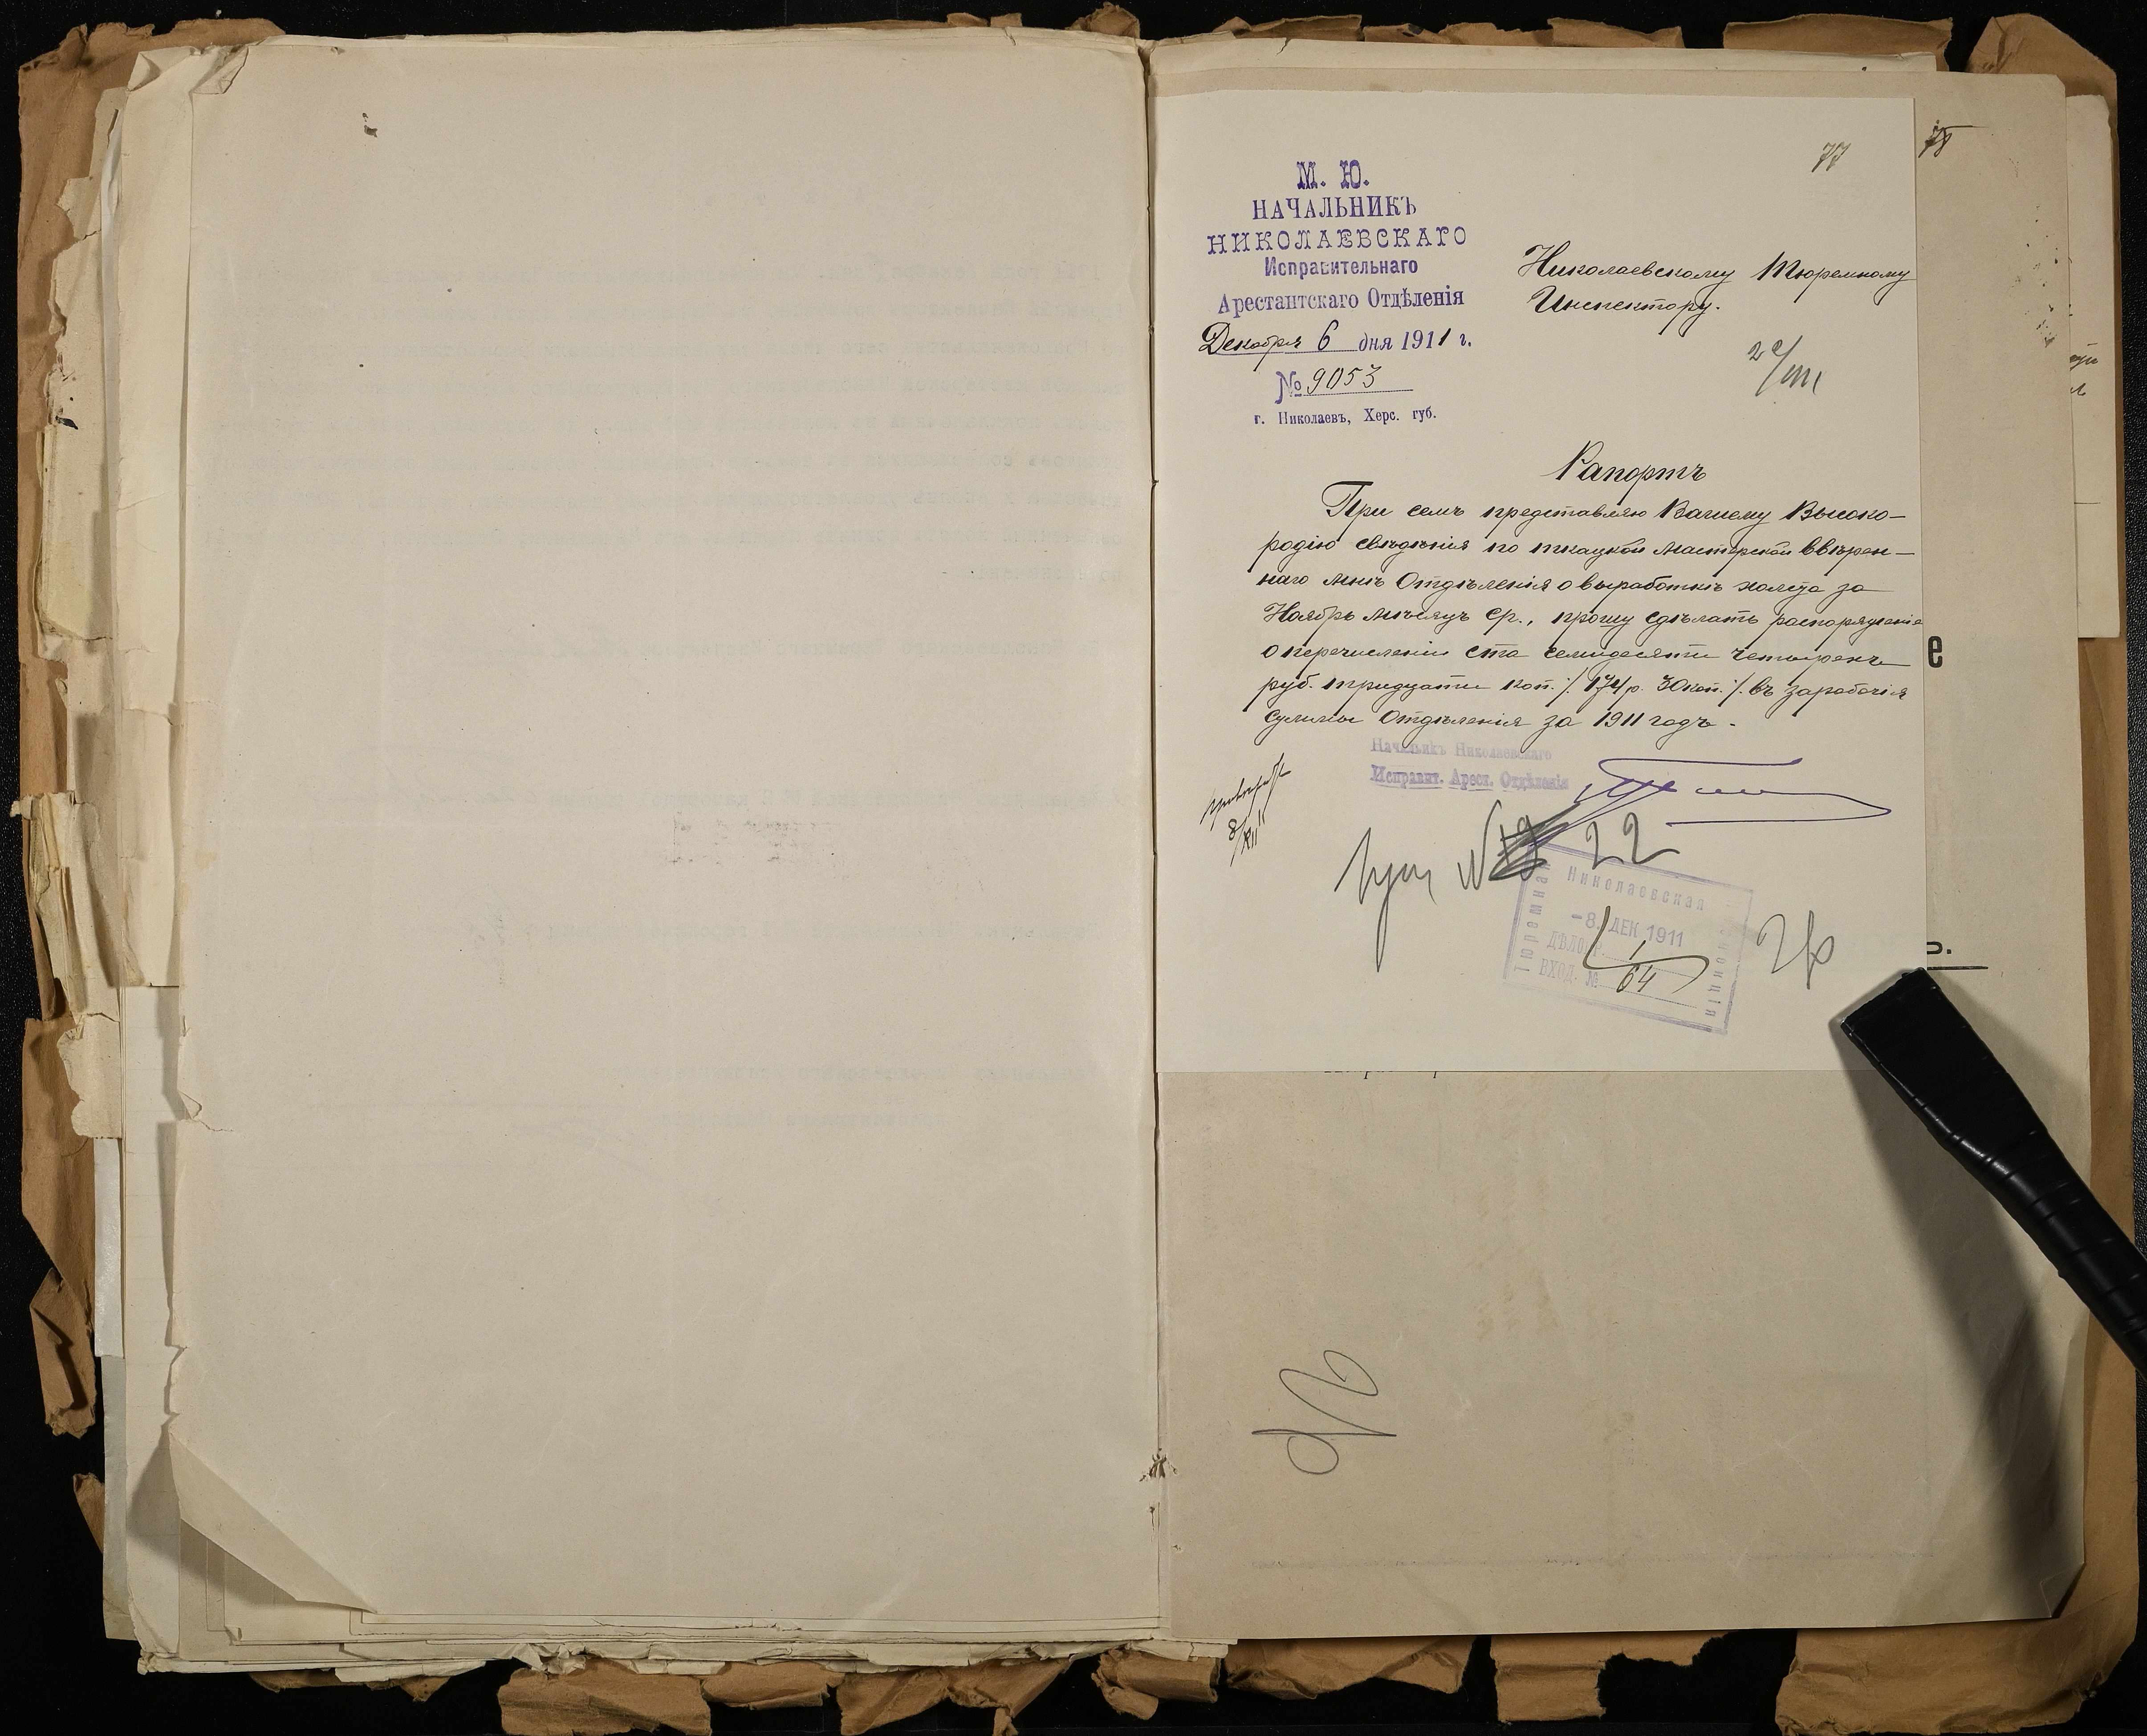 77
78
М. Ю.
НАЧАЛЬНИКЪ
НИКОЛАЕВСКАГО
Исправительнаго
Арестантскаго Отдѣленія
Декабря 6 дня 1911 г.
№ 9053
г. Николаевъ, Херс. губ.
Николаевскому Тюремному
Инспектору.
Рапортъ
При семъ представляю Вашему Высоко-
родію свѣдѣнія по ткацкой мастерской ввѣрен-
наго мнѣ Отдѣленія о выработкѣ холста за
Ноябрь мѣсяцъ с.г., прошу сдѣлать распоряженіе
о перечисленіи ста семидесяти четырехъ
руб. тридцати коп. /. 174 р. 30 коп. /. въ заработія
суммы Отдѣленія за 1911 годъ.
Начальникъ Николаевскаго
Исправит. Арест. Отдѣленія
8/XII
22
Николаевская
Тюремная
Инспекція
-8. ДЕК 1911
ДѢЛО № 1
ВХОД. № 64
е
ь.